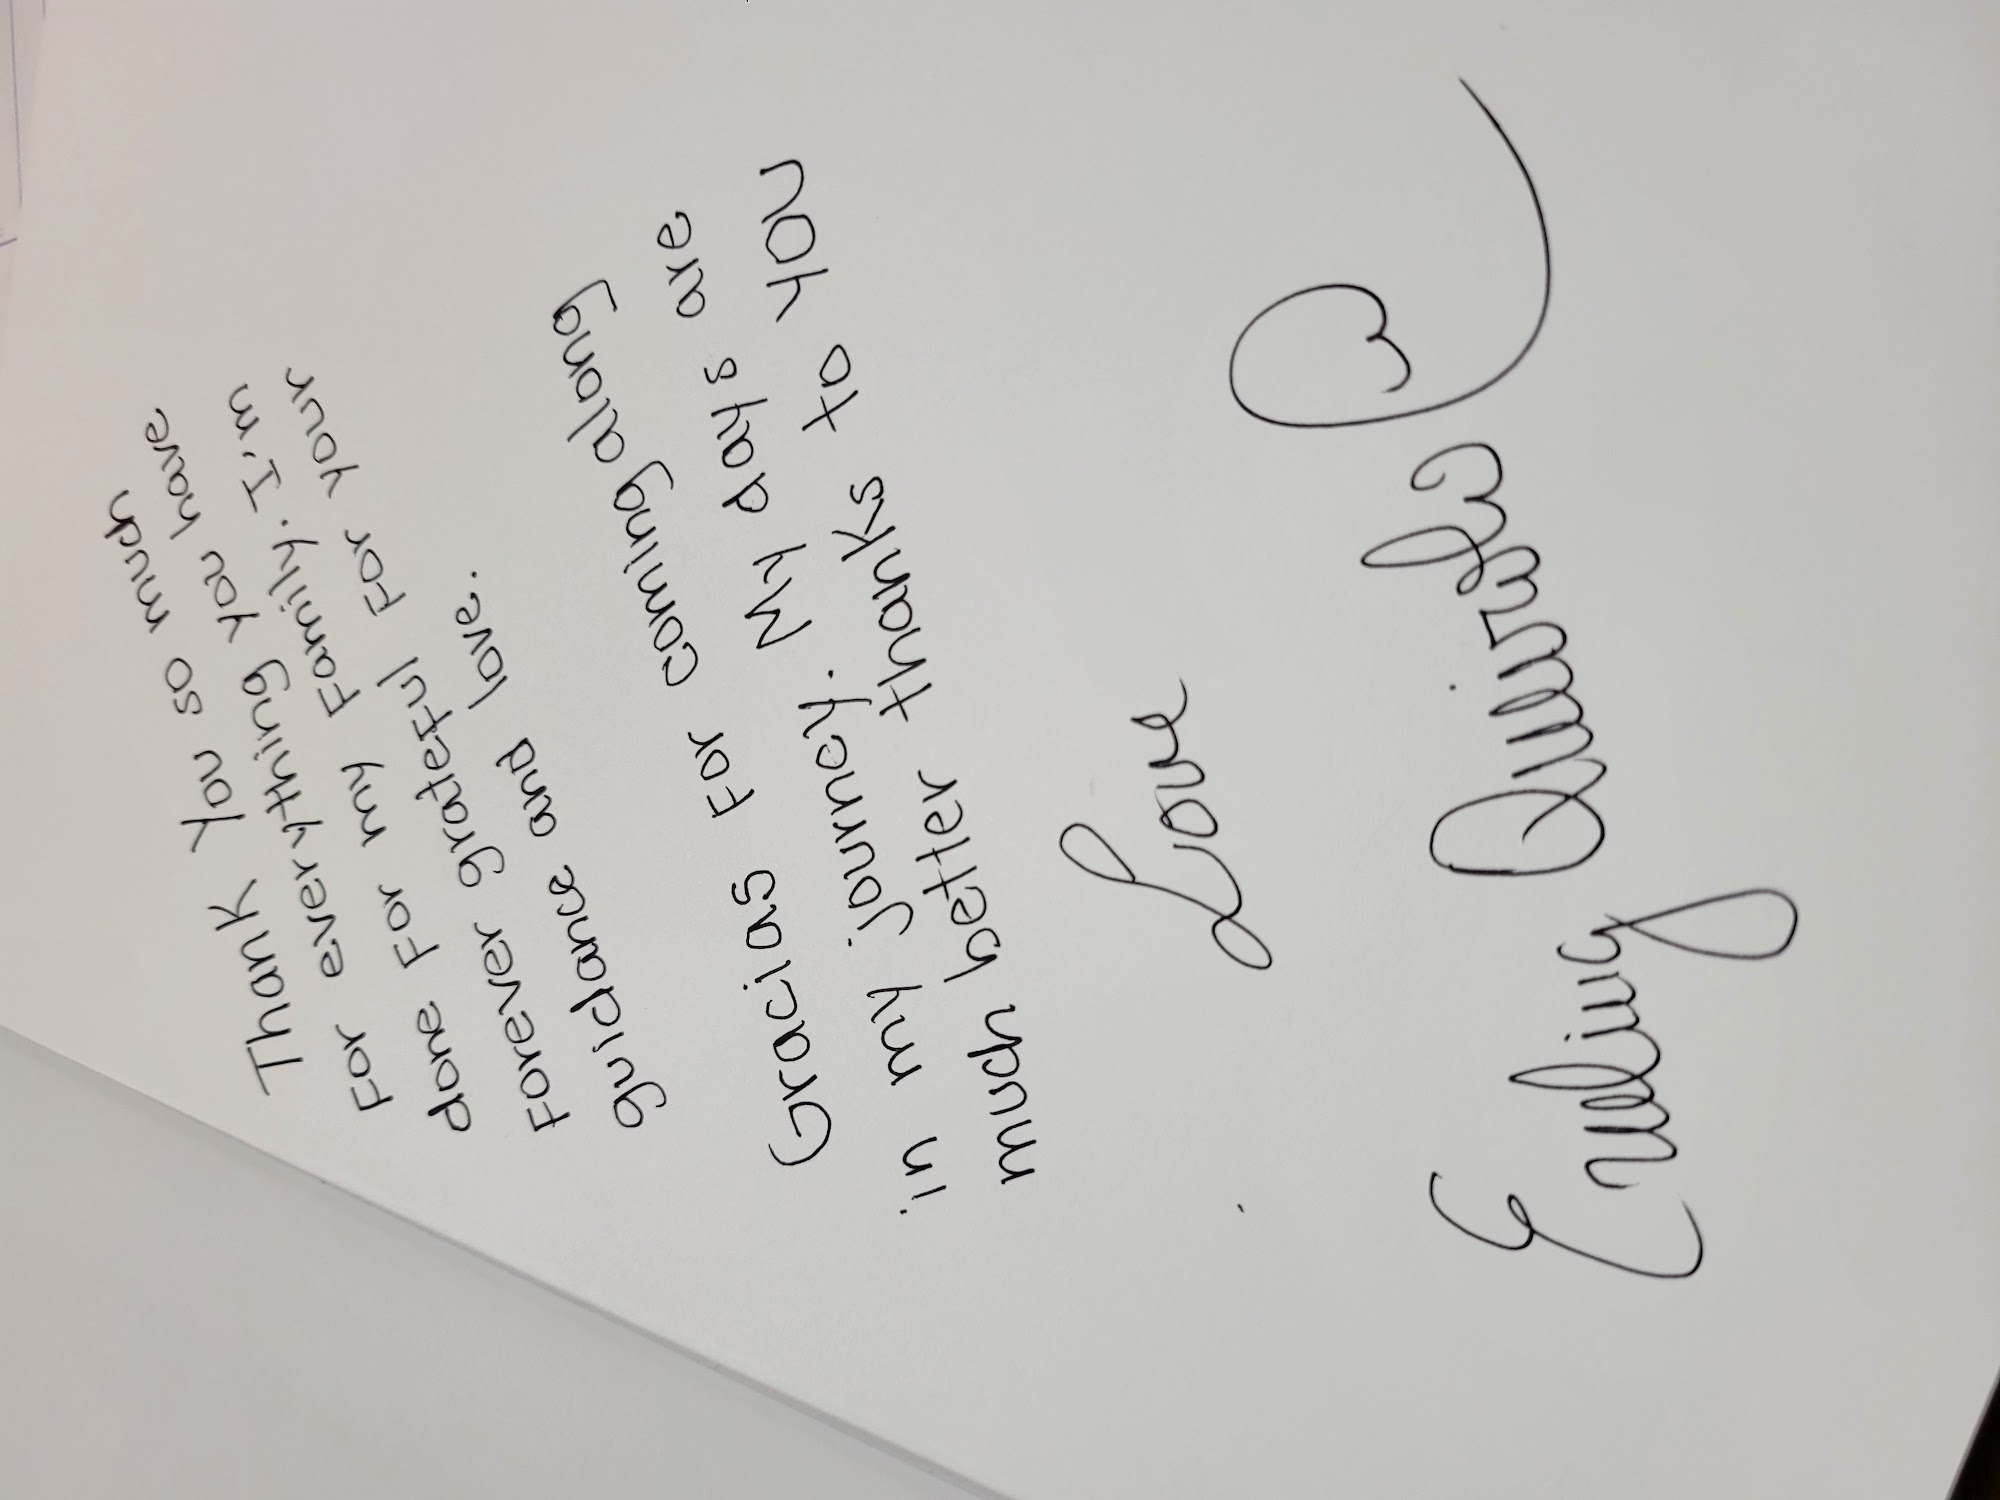 Thank you so much
For everything you have
done For my Family. I'm
Forever grateful For your
guidance and love.
Gracias For coming along
in my journey. My days are
much better thanks to you
Love